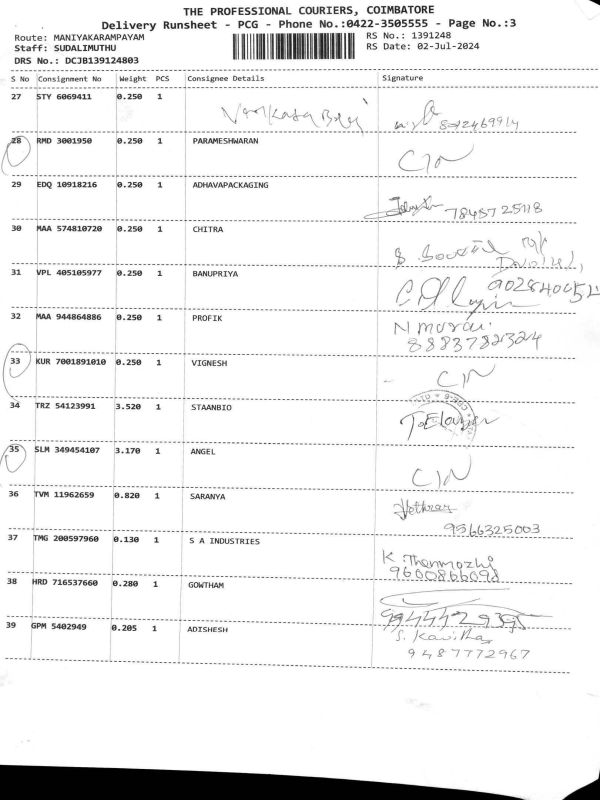 THE PROFESSIONAL COURIERS, COIMBATORE
Delivery Runsheet - PCG - Phone No.:0422-3505555 - Page No.:3
Route: MANIYAKARAMPAYAM
RS No.: 1391248
Staff: SUDALIMUTHU
RS Date: 02-Jul-2024
DRS No.: DCJB139124803
S No Consignment No Weight PCS Consignee Details Signature
27 STY 6069411 0.250 1
28 RMD 3001950 0.250 1 PARAMESHWARAN
29 EDQ 10918216 0.250 1 ADHAVAPACKAGING
7845725118
30 MAA 574810720 0.250 1 CHITRA
31 VPL 405105977 0.250 1 BANUPRIYA
32 MAA 944864886 0.250 1 PROFIK
8883782324
33 KUR 7001891010 0.250 1 VIGNESH
34 TRZ 54123991 3.520 1 STAANBIO
35 SLM 349454107 3.170 1 ANGEL
36 TVM 11962659 0.820 1 SARANYA
9566325003
37 TMG 200597960 0.130 1 S A INDUSTRIES
K. Thenmozhi
9600866098
38 HRD 716537660 0.280 1 GOWTHAM
39 GPM 5402949 0.205 1 ADISHESH
S. Kavitha
9487772967